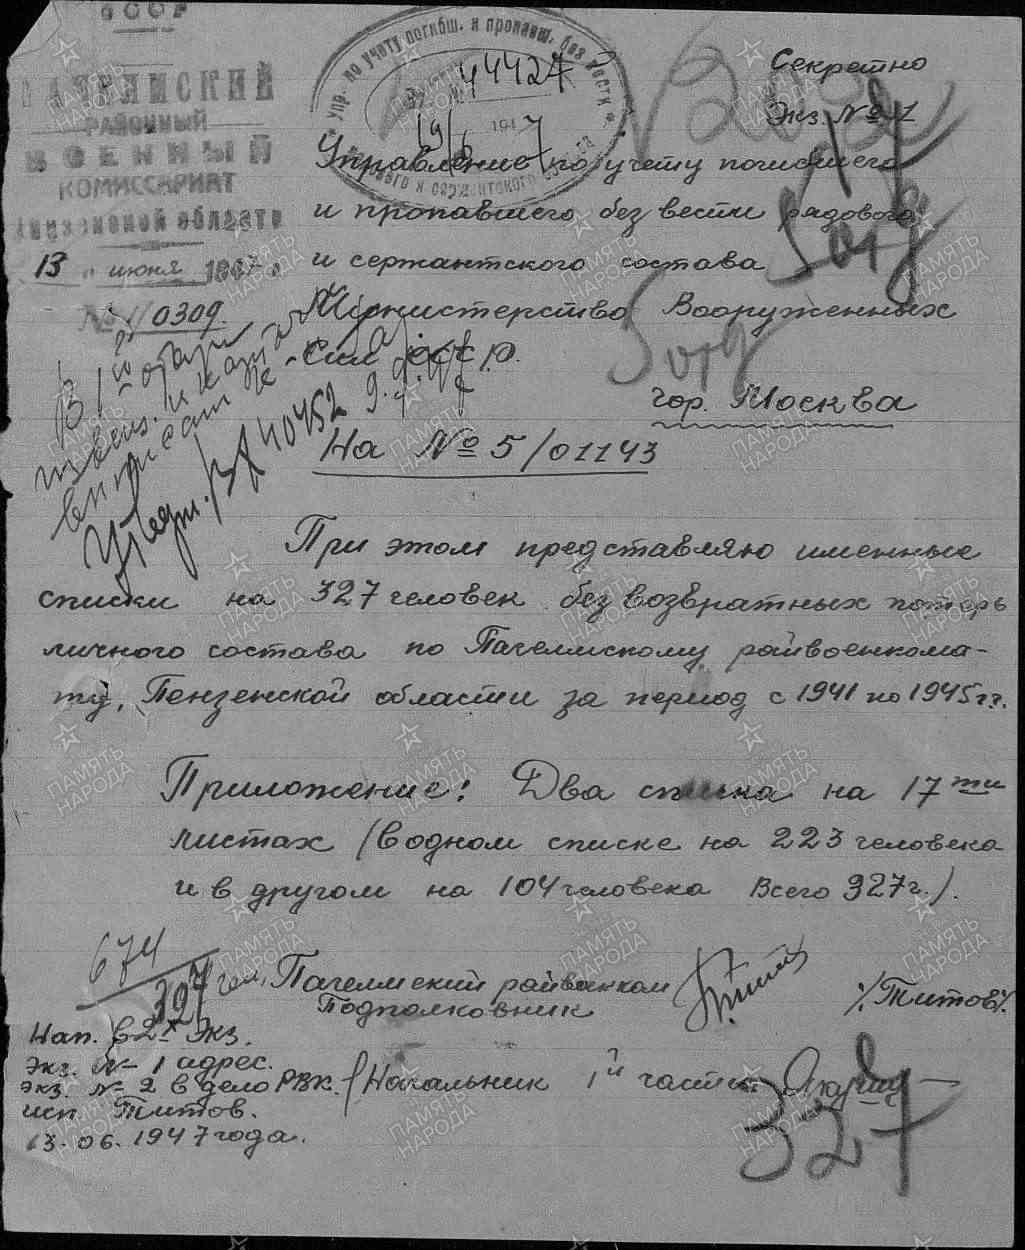 СССР
ПАЧЕЛМСКИЙ
РАЙОННЫЙ
ВОЕННЫЙ
КОМИССАРИАТ
Пензенской области
13 " июня 1947 г.
№ 1/0309.
Упр. по учету погибш. и пропавш. без вести
рядового и сержантского состава
44427
19/6 1947
Секретно
Экз. № 1
Управление по учету погибшего
и пропавшего без вести рядового
и сержантского состава
Министерство Вооруженных
Сил СССР.
гор. Москва
На № 5/01143
В 1
извещ. и карт
впис
40452
При этом представляю именные
списки на 327 человек безвозвратных потерь
личного состава по Пачелмскому райвоенкома-
ту, Пензенской области за период с 1941 по 1945 г.г.
Приложение: Два списка на 17 ти
листах (в одном списке на 223 человека
и в другом на 104 человека Всего 327 ч.).
674
327 чел.
Пачелмский райвоенком
Подполковник
/Титов/.
Нап. в 2х экз.
Экз. № 1 адрес.
экз. № 2 в дело РВК.
исп. Титов.
13.06.1947 года.
Начальник 1й части
327
ПАМЯТЬ НАРОДА